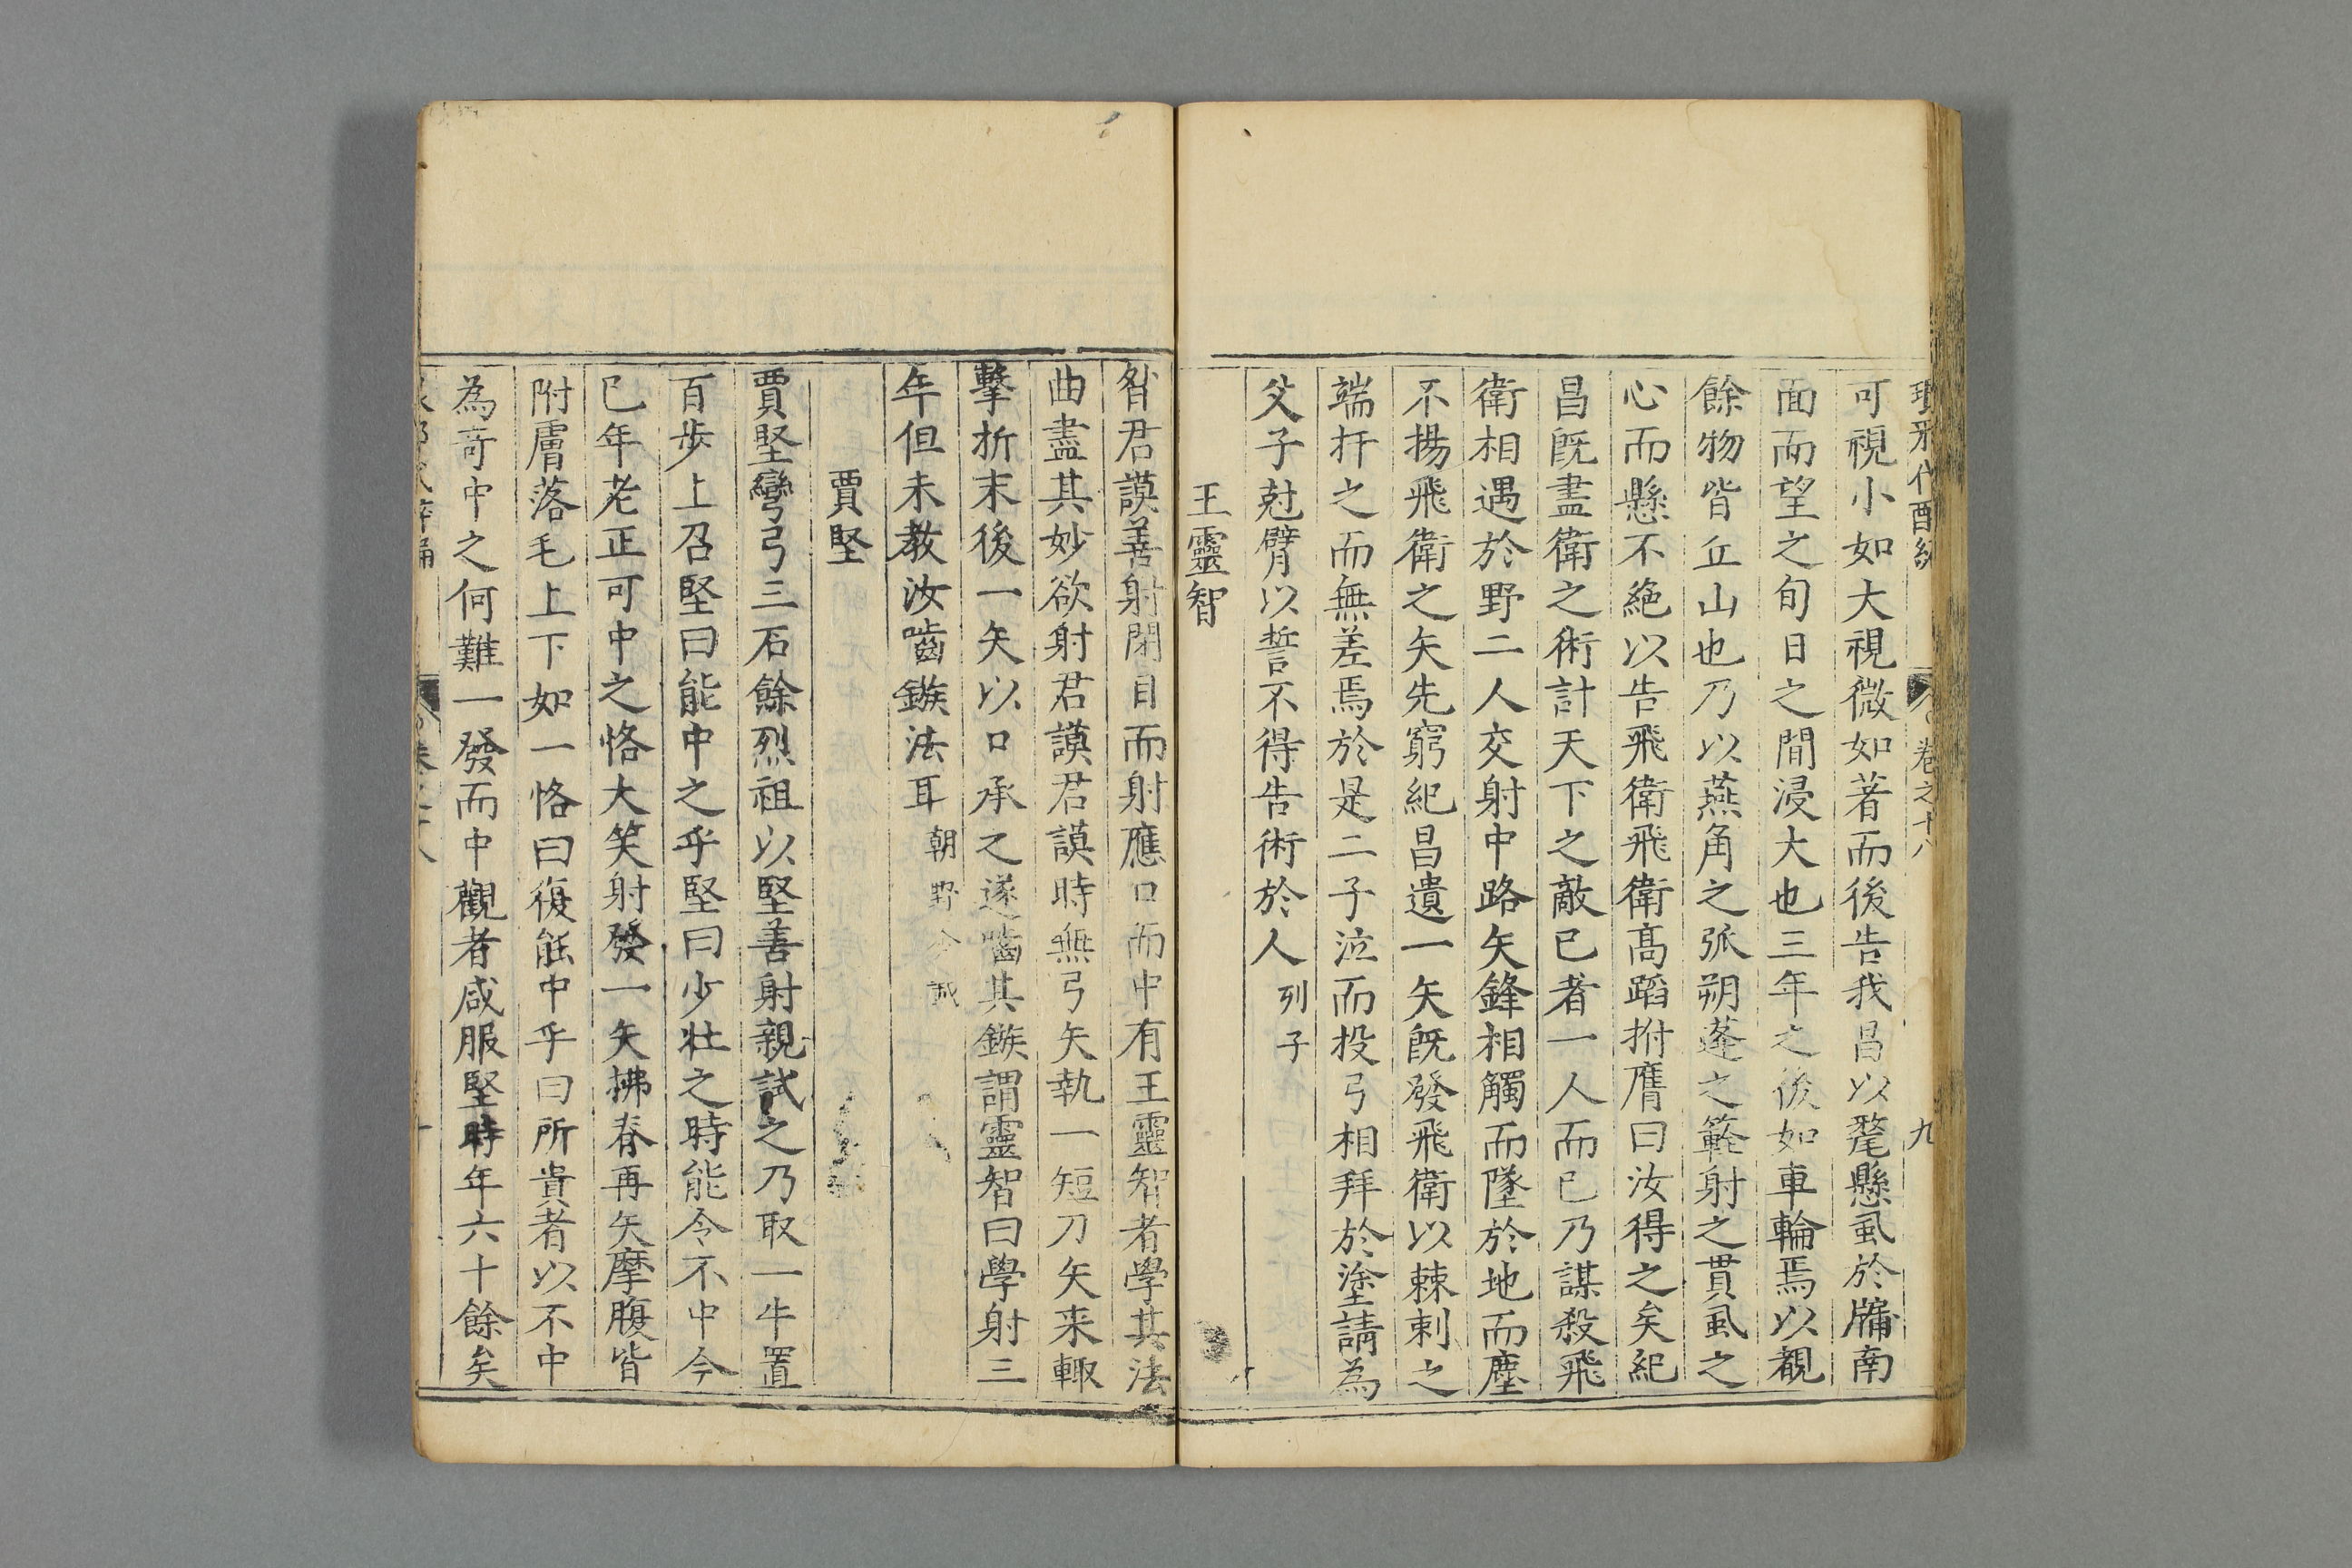 卷之十八 九
可視小如大視微如著而後告我昌以氂懸虱於牖南
面而望之旬日之間浸大也三年之後如車輪焉以覩
餘物皆丘山也乃以燕角之弧朔蓬之簳射之貫虱之
心而懸不絶以告飛衛飛衛髙蹈拊膺曰汝得之矣紀
昌旣盡衛之術計天下之敵已者一人而已乃謀殺飛
衛相遇於野二人交射中路矢鋒相觸而墜於地而塵
不揚飛衛之矢先窮紀昌遺一矢旣發飛衛以棘刺之
端扞之而無差焉於是二子泣而投弓相拜於塗請為
父子尅臂以誓不得告術於人列子
王靈智
昝君謨善射閉目而射應口而中有王靈智者學其法
曲盡其妙欲射君謨君謨時無弓矢執一短刀矢来輙
擊折末後一矢以口承之遂嚙其鏃謂靈智曰學射三
年但未教汝嚙鏃法耳朝野僉載
賈堅
賈堅彎弓三石餘烈祖以堅善射親試之乃取一牛置
百步上召堅曰能中之乎堅曰少壯之時能令不中今
已年老正可中之恪大笑射發一矢拂脊再矢摩腹皆
附膚落毛上下如一恪曰復能中乎曰所貴者以不中
為竒中之何難一發而中觀者咸服堅時年六十餘矣